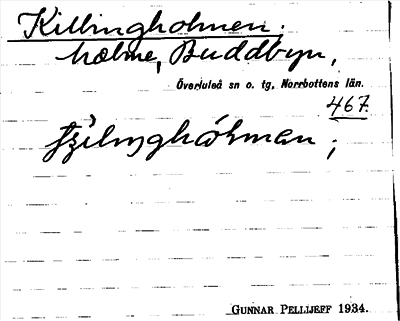 Killingholmen.
holme, Buddbyn,
Överluleå sn o. tg, Norrbottens län.
467.
GUNNAR PELLIJEFF 1934.